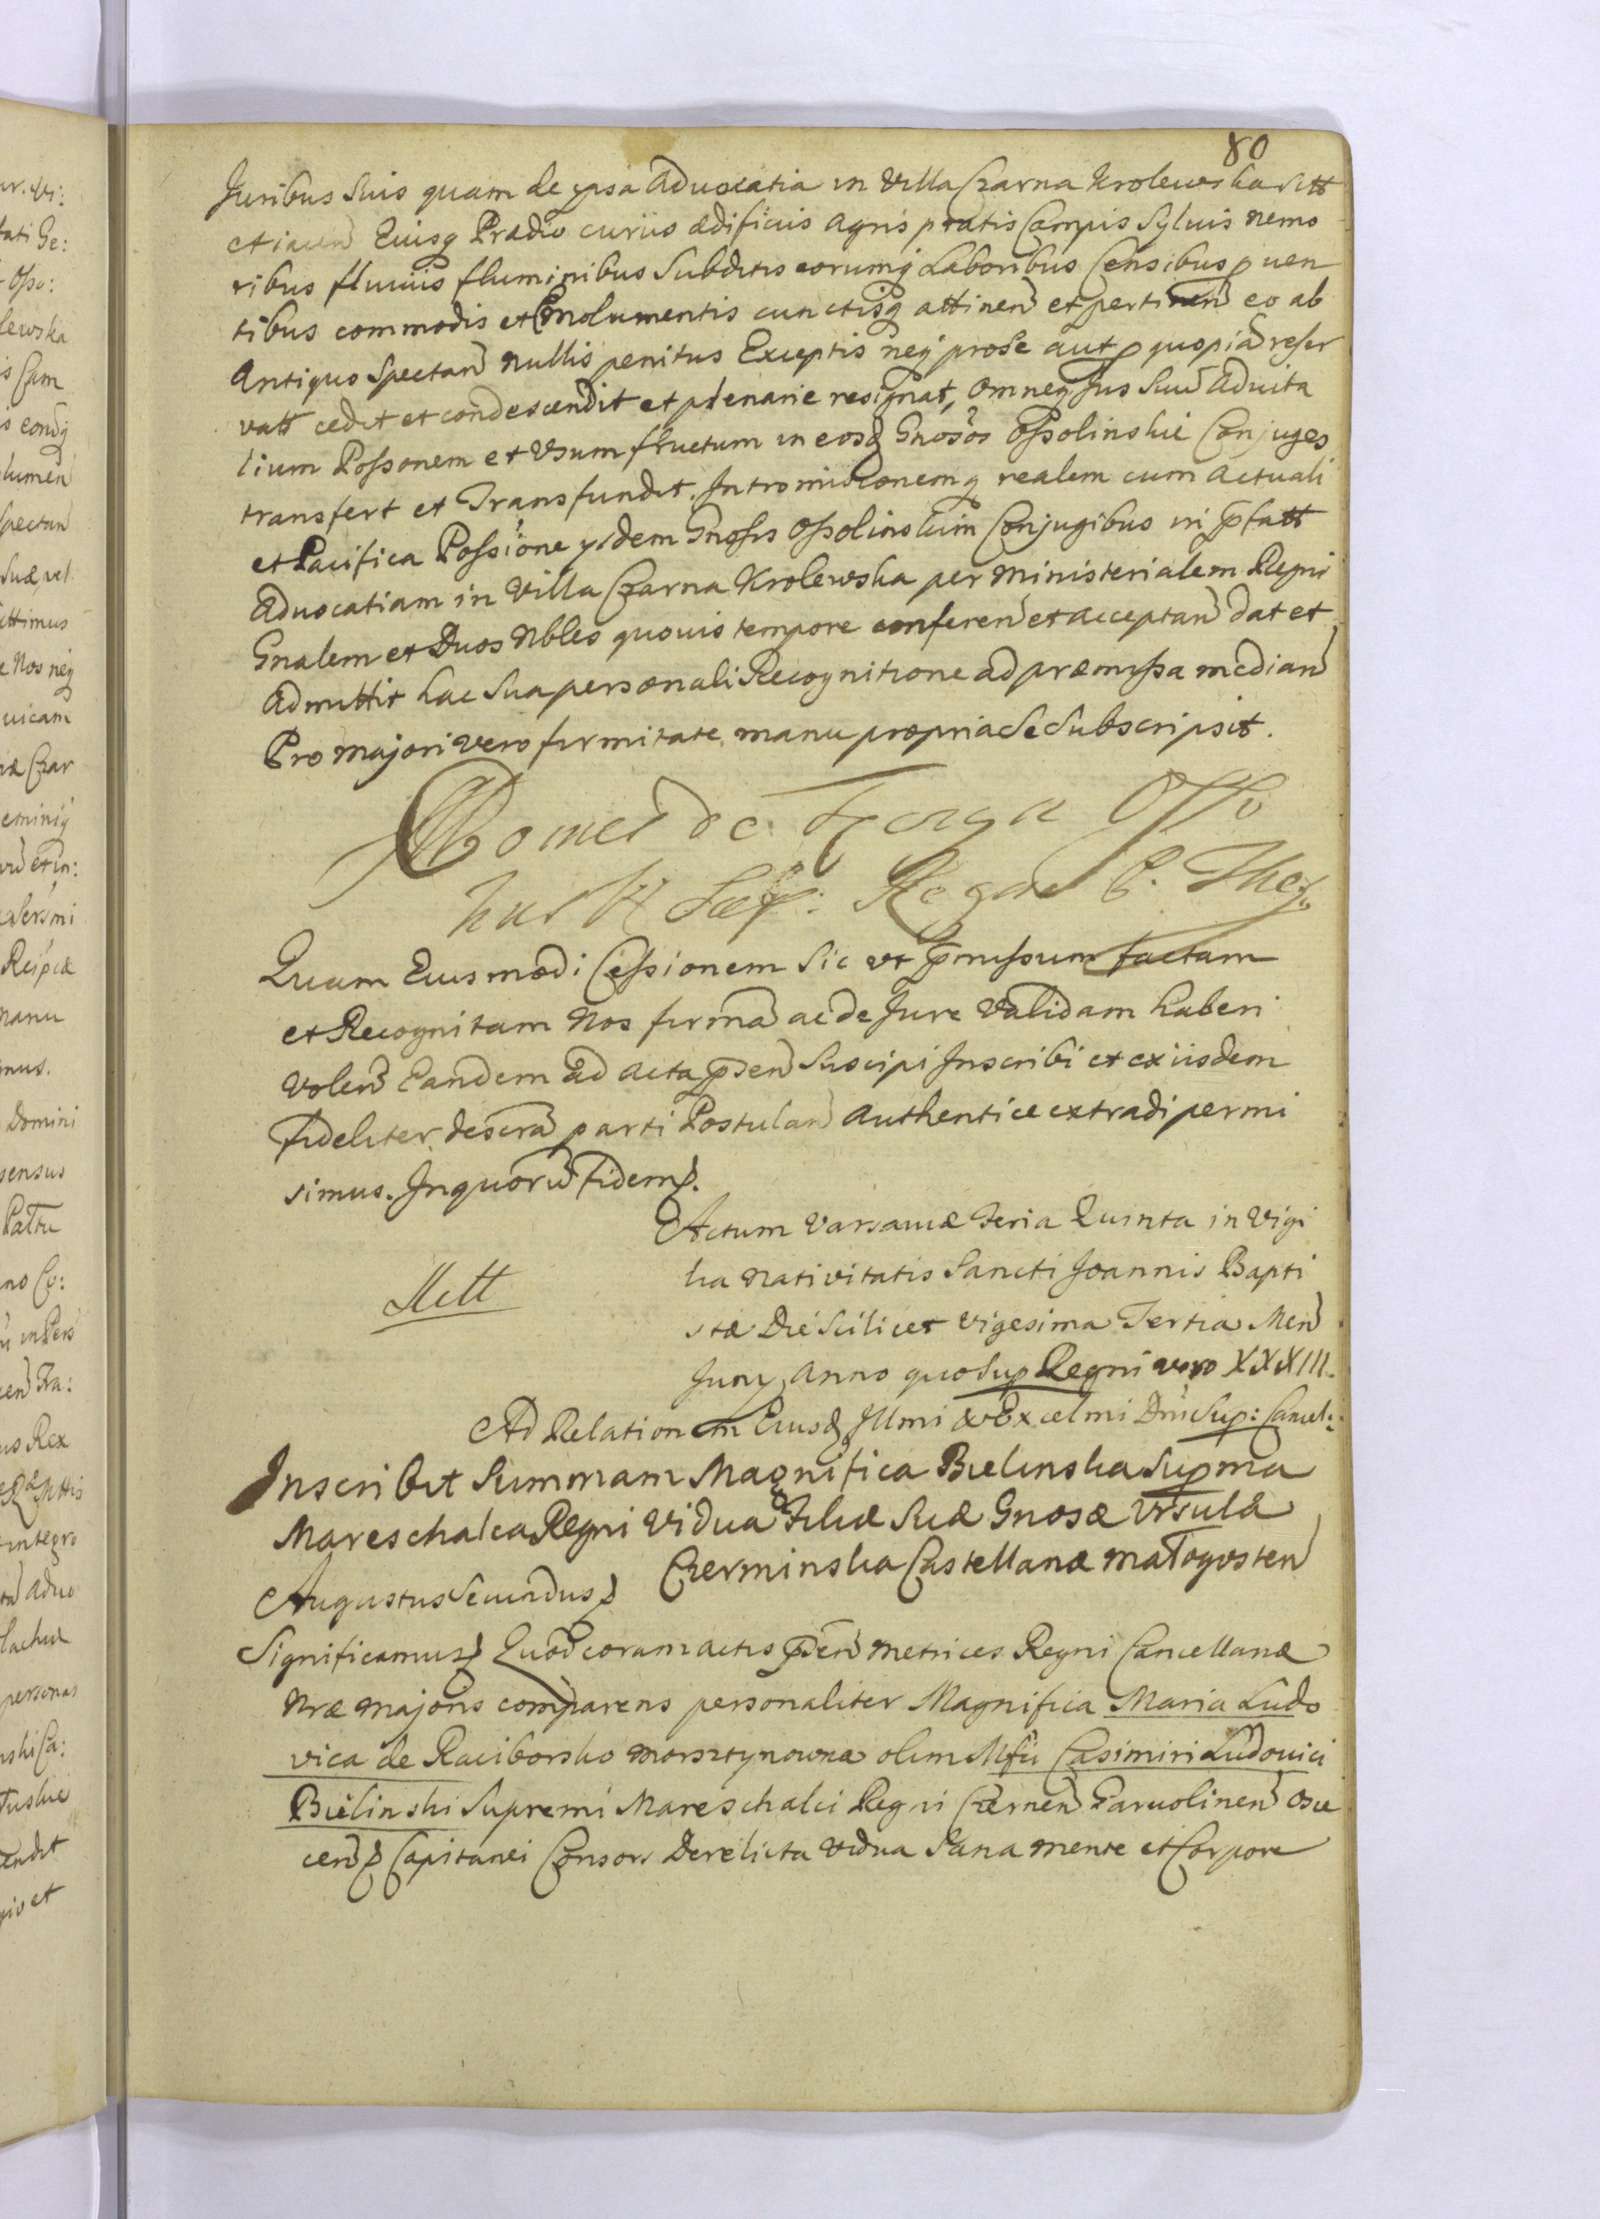 80
Juribus Suis quam de ipsa Advocatia in Villa Czarna Krolewska sitt
et iacen Euisq Prædio curiis ædificiis agris pratis Campis Syluis nemo
ribus fluuiis fluminibus Subditis eorumq Laboribus Censibus puen
tibus commodis et Emolumentis cunctisq attinen et pertinen eo ab
Antiquo Spectan nullis penitus Exceptis neq pro se aut p quopiã reser
vatt cedit et condescendit et plenarie resignat, omneq Jus Suũ Advita
litium Possonem et Usum fructum in eosd Gnosos Ossolinskie Conjuges
transfert et Transfundit. Intromissionemq realem cum Actuali
et Pacifica Possione ijsdem Gnosis Ossolinskim Conjugibus in pfatt
Advocatiam in Villa Czarna Krolewska per Ministerialem Regni
Gnalem et Duos Nbles quouis tempore conferen et acceptan dat et
Admittit hac Sua personali Recognitione ad præmissa median
Pro majori vero firmitate manu propria Se Subscripsit.
Comes de Osso
S. Regni P. Thes.
Quam Euismodi Cessionem Sic ut pmissum factam
et Recognitam Nos firmã ac de Jure Validam haberi
Volen Eandem ad acta psen Suscipi Inscribi et ex iisdem
fideliter descrã parti Postulan Authentice extradi permi
simus. In quorũ fidem p.
Actum Varsaviæ Feria Quinta in Vigi
lia Nativitatis Sancti Joannis Bapti
stæ Die Scilicet Vigesima Tertia Men
Juny, Anno quo Sup Regni vero XXXIII.
Ad Relationem Eiusd Illmi & Excelmi Dni Sup: Cancel:
Inscribit Summam Magnifica Bielinska Supma
Mareschalca Regni Vidua Filiæ Suæ Gnosæ Ursulæ
Czerminska Castellanæ Małogosten
Augustus Secundus p
Significamus p Quod coram actis psen Metrices Regni Cancellariæ
Nræ Majoris comparens personaliter Magnifica Maria Ludo
vica de Raciborsko Morsztynowna olim Mfci Casimiri Ludouici
Bielinski Supremi Mareschalci Regni Czernen Garuolinen Osie
cen p Capitanei Consors Derelicta vidua Sana mente et Corpore